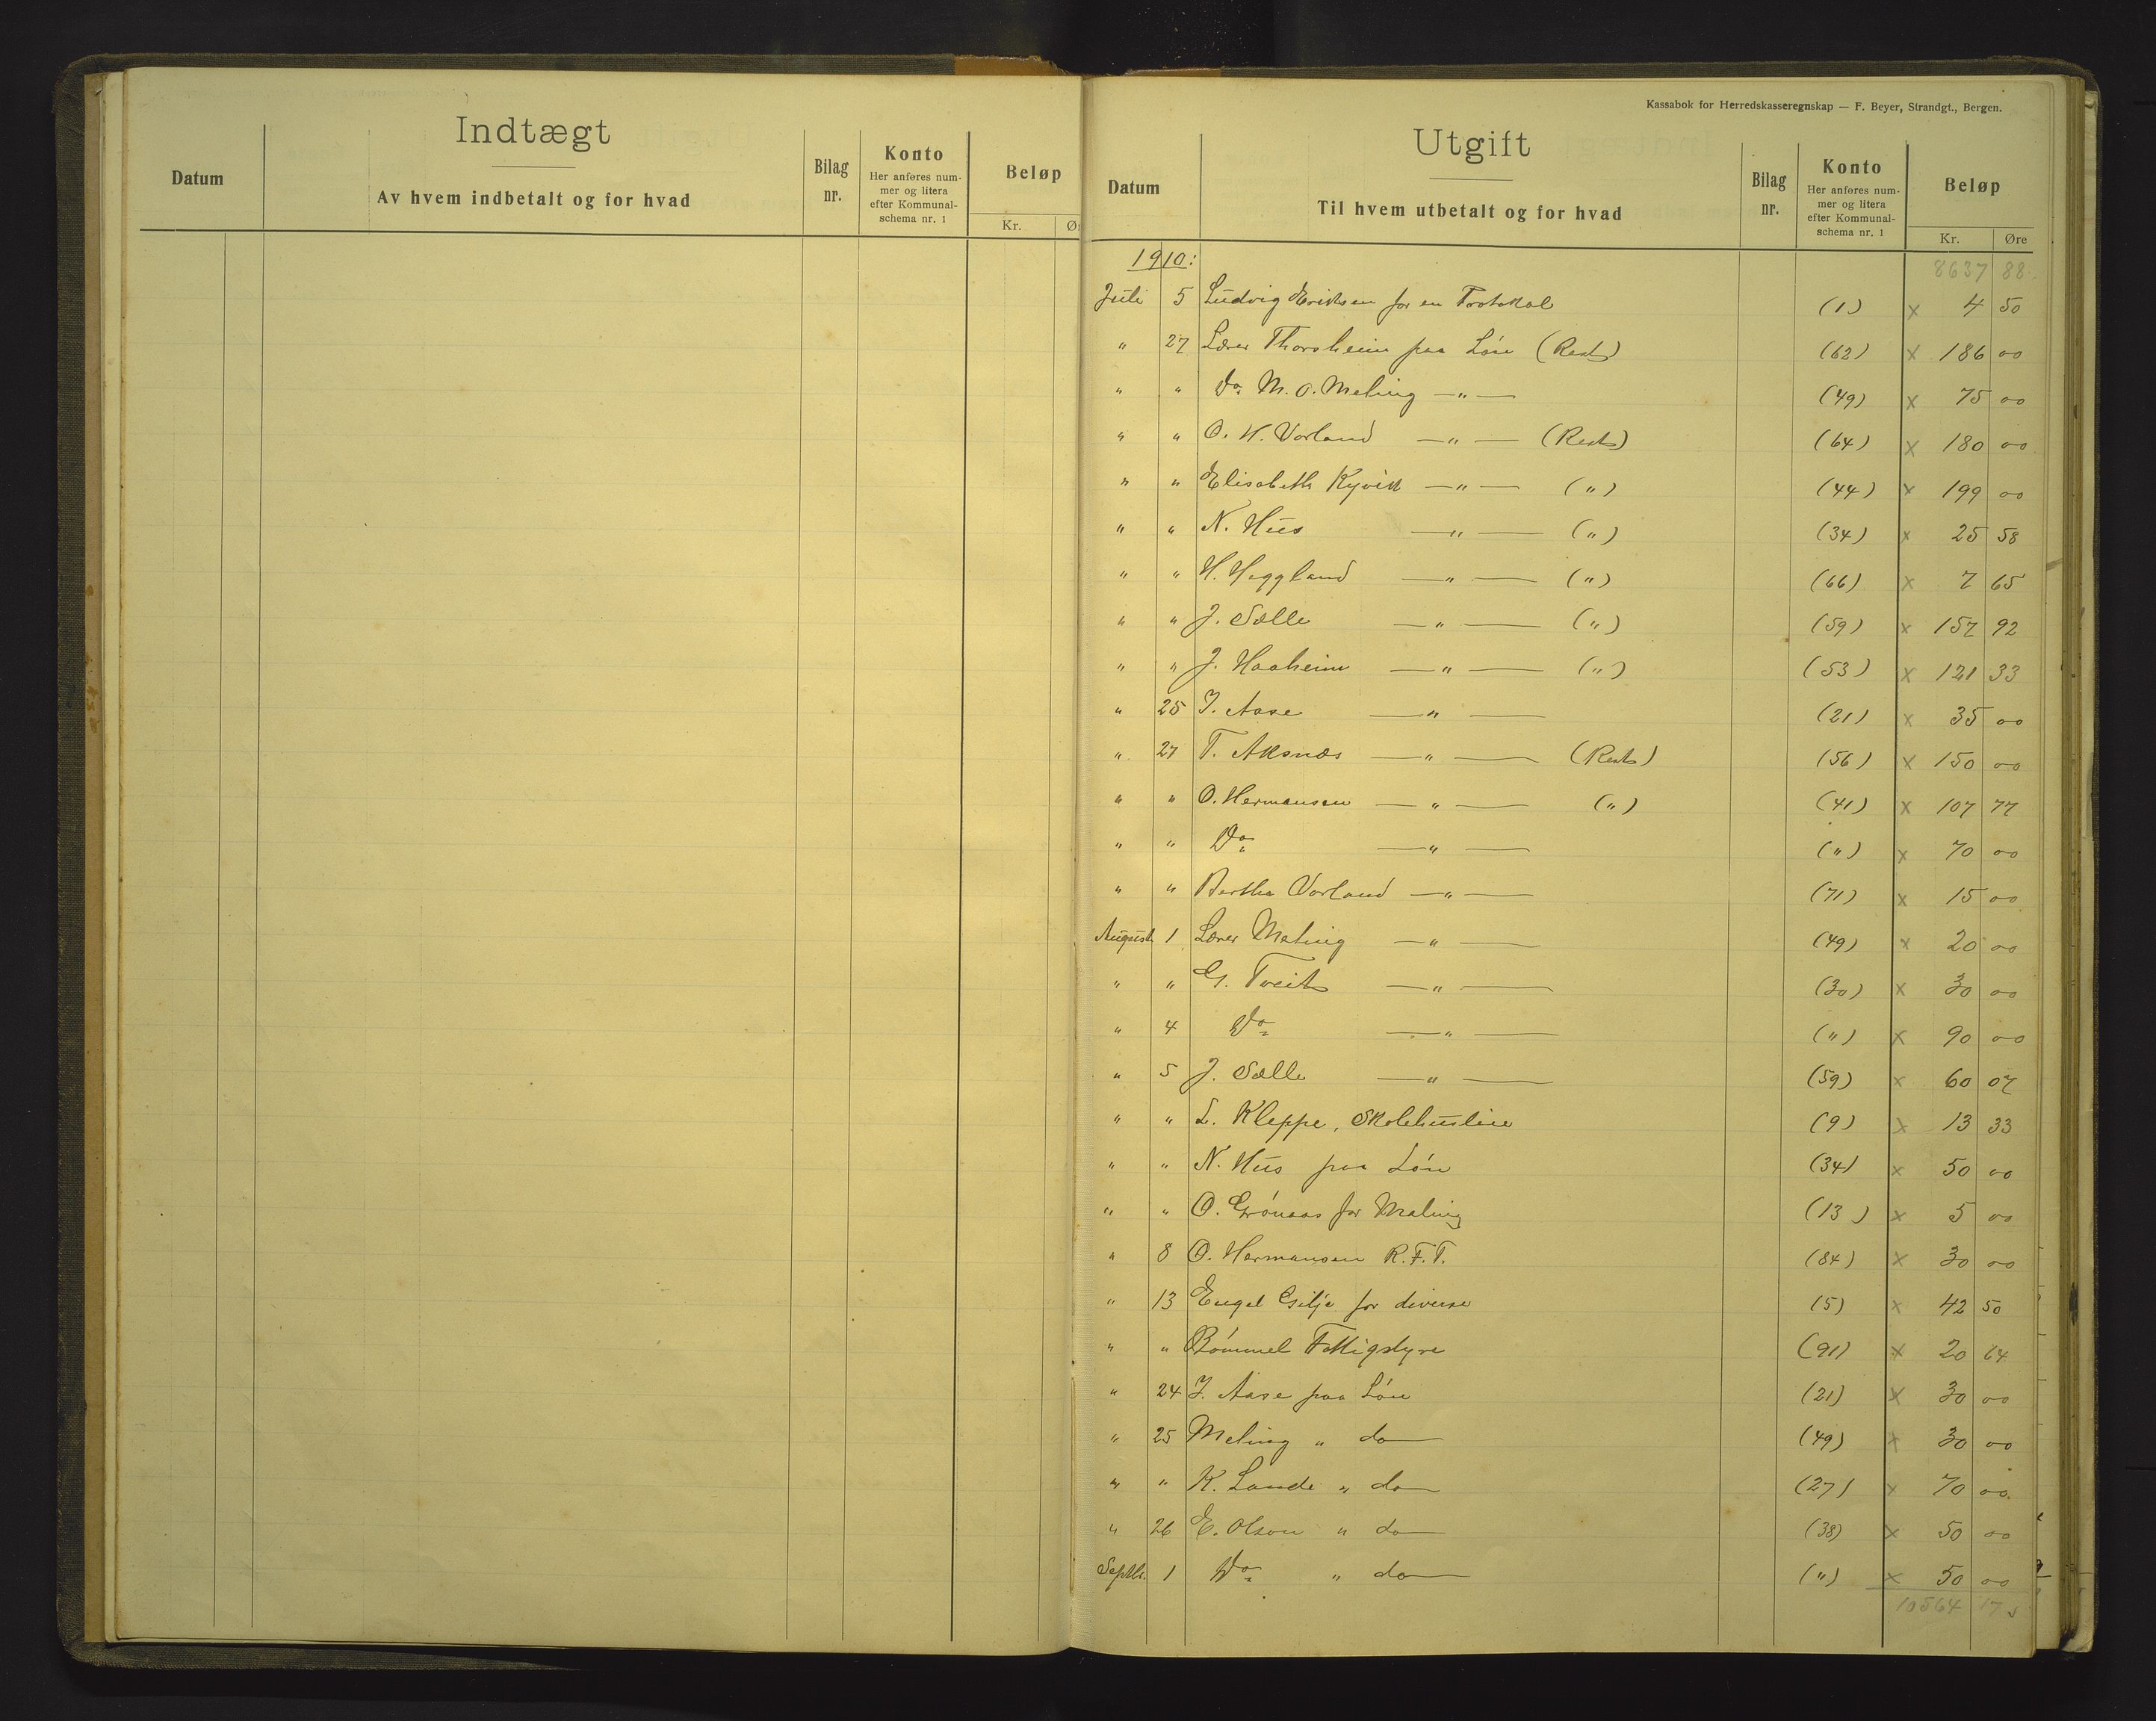 Indtægt
Datum
Av hvem indbetalt og for hvad
Bilag nr.
Konto
Her anføres num-
mer og litera
efter Kommunal-
schema nr. 1
Beløp
Kr.
Kassabok for Herredskasseregnskap — F. Beyer, Strandgt., Bergen.
Utgift
Datum
Til hvem utbetalt og for hvad
Bilag nr.
Konto
Her anføres num-
mer og litera
efter Kommunal-
schema nr. 1
Beløp
Kr. Øre
1910: 8637 88
Juli 5 Ludvig Eriksen for en Protokol (1) x 4 50
" 27 Lærer Thorsheim paa Løn (Rest) (62) x 186 00
" " Do. M. O. Meling —"— (49) x 75 00
" " O. H. Vorland —"— (Rest) (64) x 180 00
" " Elisabeth Kyvik —"— (") (44) x 199 00
" " N. Hus —"— (") (34) x 25 58
" " H. Heggland —"— (") (66) x 7 65
" " J. Sælle —"— (") (59) x 157 92
" " J. Haaheim —"— (") (53) x 121 33
" 25 I. Aase —"— (21) x 35 00
" 27 T. Aksnæs —"— (Rest) (56) x 150 00
" " O. Hermansen —"— (") (41) x 107 77
" " Do. —"— (") x 70 00
" " Bertha Vorland —"— (71) x 15 00
August 1 Lærer Meling —"— (49) x 20 00
" " G. Tveit —"— (30) x 30 00
" 4 Do. —"— (") x 90 00
" 5 J. Sælle —"— (59) x 60 07
" " L. Kleppe, Skolehusleie (9) x 13 33
" " N. Hus paa Løn (34) x 50 00
" " O. Grønaas for Maling (13) x 5 00
" 8 O. Hermansen R.F.T. (84) x 30 00
" 13 Engel Gilje for diverse (5) x 42 50
" " Bømmel Fattigstyre (91) x 20 64
" 24 I. Aase paa Løn (21) x 30 00
" 25 Meling " do — (49) x 30 00
" " K. Lande " do — (27) x 70 00
" 26 E. Olson " do — (38) x 50 00
Septbr. 1 Do. " do — (") x 50 00
10564 17